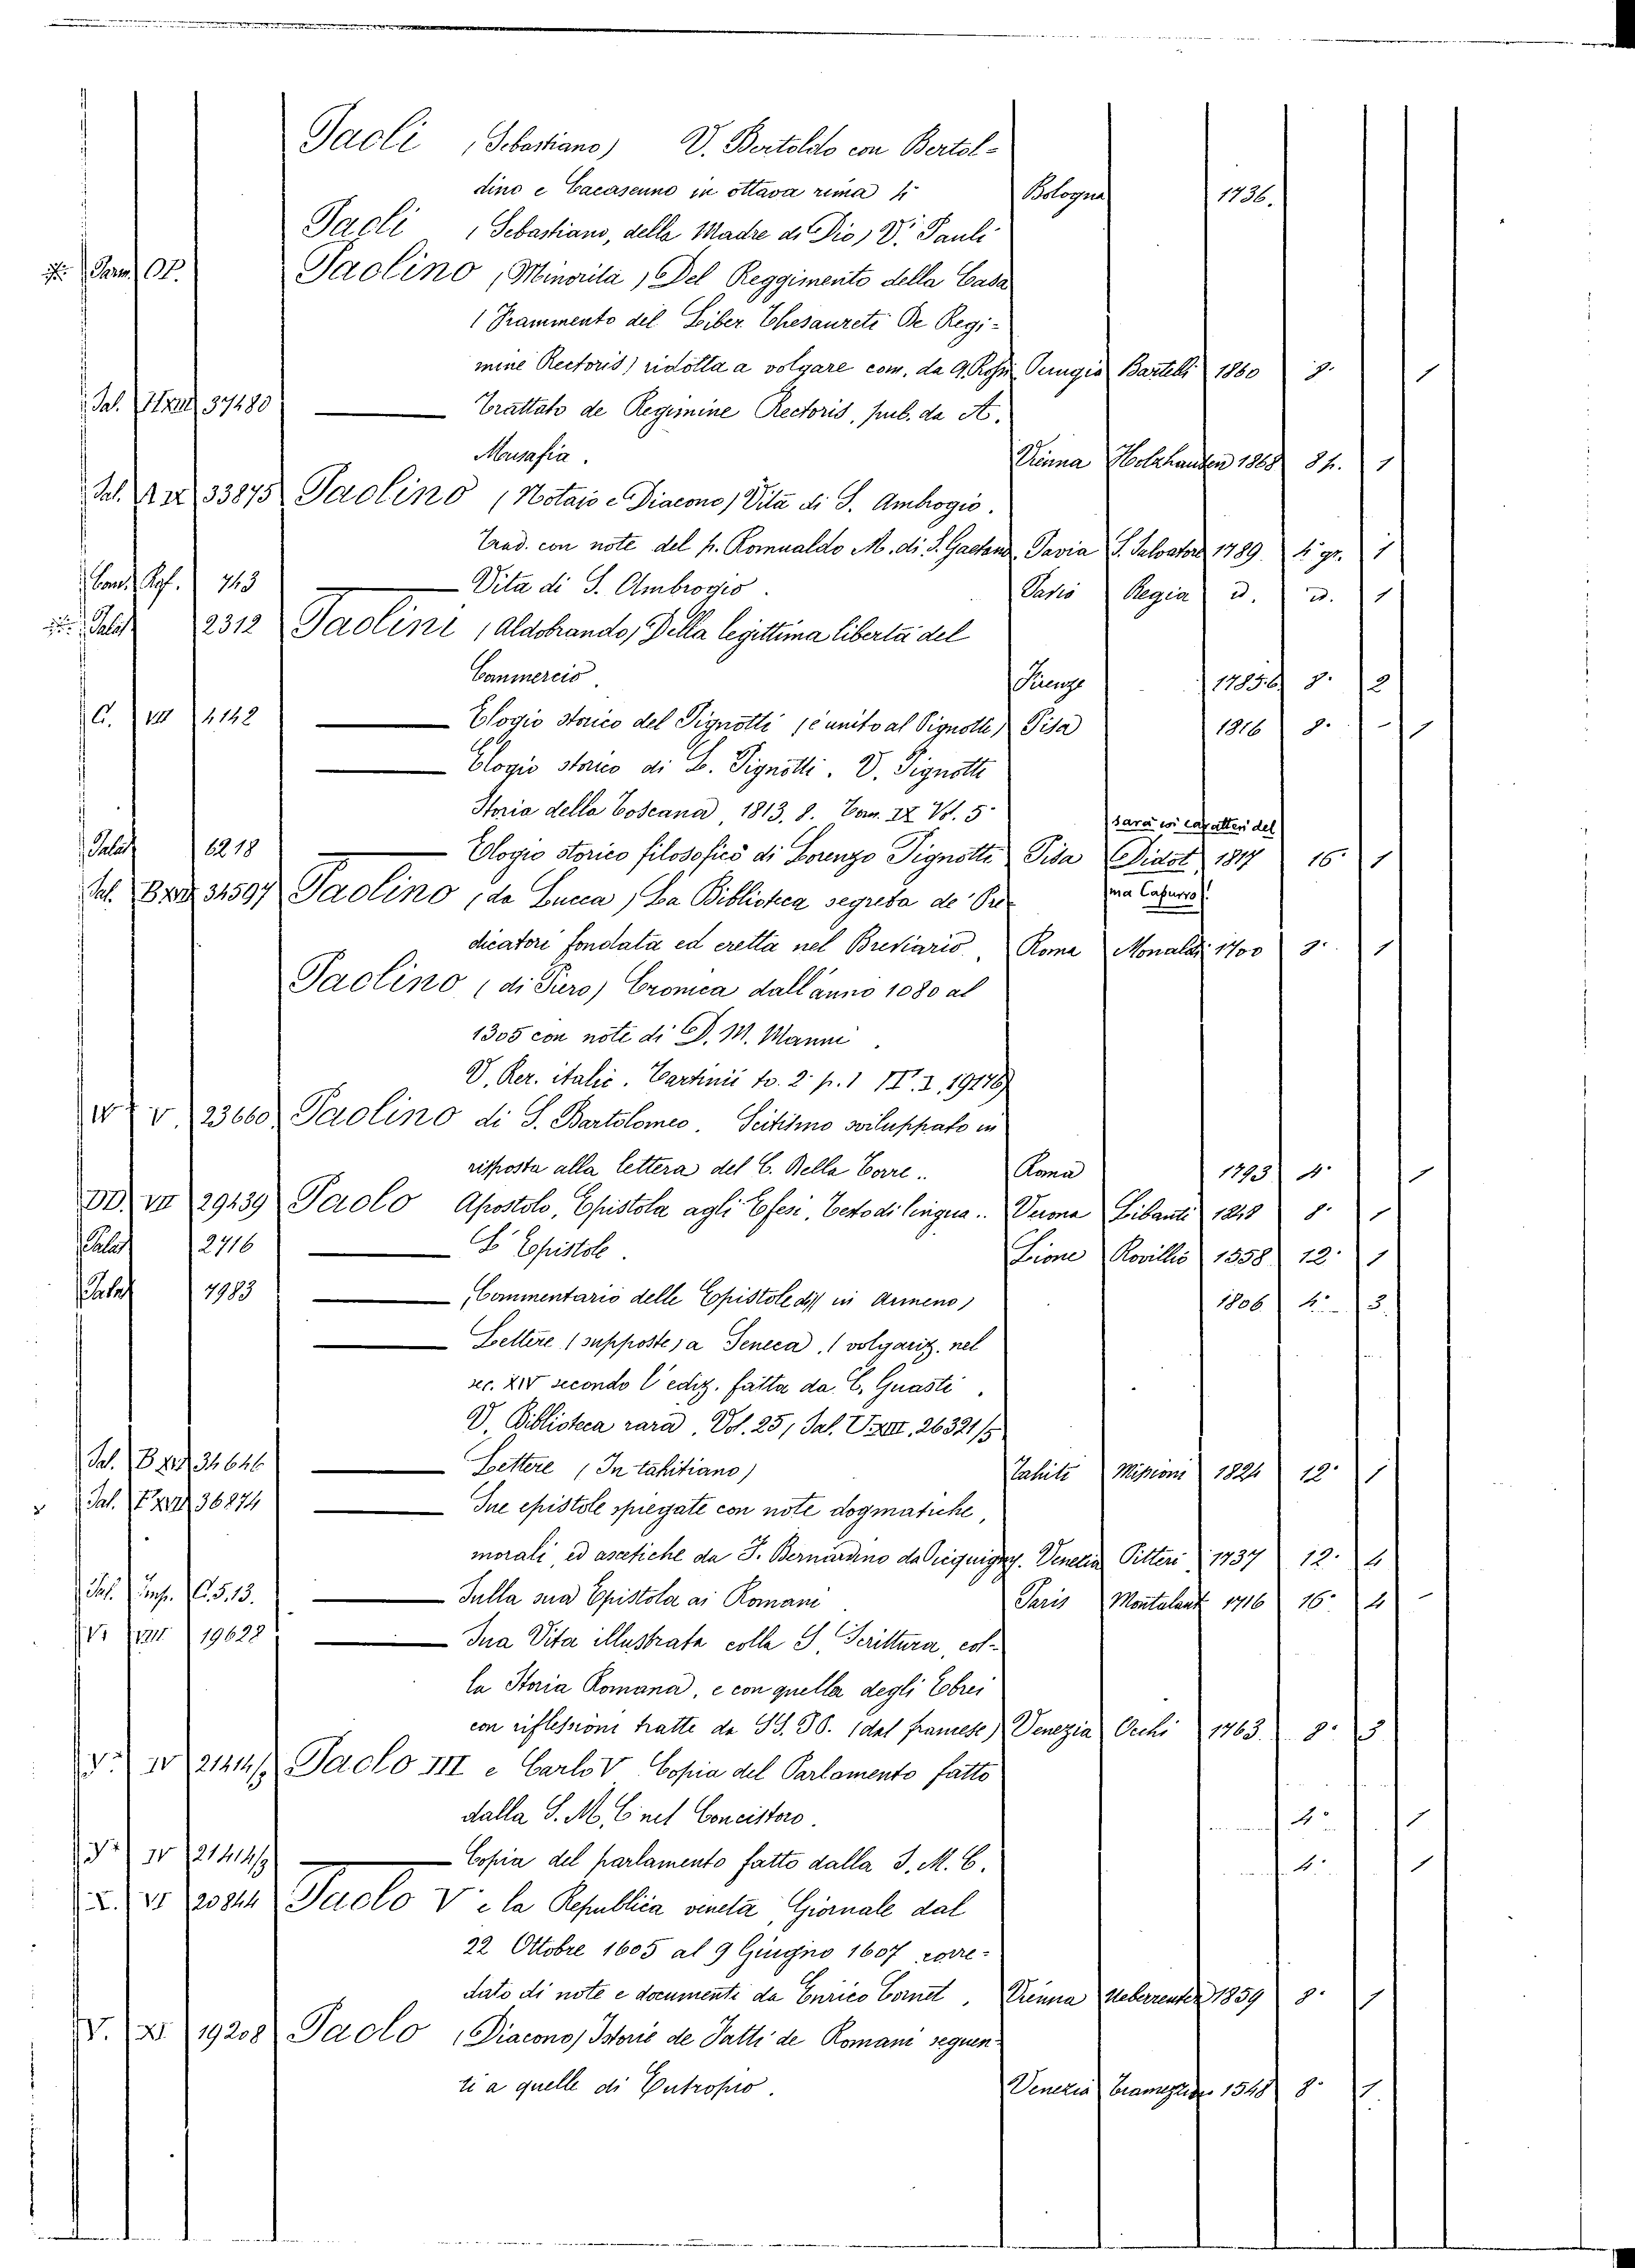 Paoli (Sebastiano) V. Bertoldo con Bertol-
dino e Cacasenno in ottava rima 4° Bologna 1736.
Paoli (Sebastiano, della Madre di Dio) V. Pauli
Parm. Paolino (Minorita) Del Reggimento della Casa
(Frammento del Liber De Regi-
mine Rectoris) ridotta a volgare com. da G. Bartelli 1860 8° 1
37480 Trattato de Regimine Rectoris, pub. da A.
Musafia. Vienna Holzhausen 1868 8 1
33875 Paolino (Notajo e Diacono) Vita di S. Ambrogio.
Trad. con note del p. Romualdo M. di S. Gaetano Pavia S. Salvatore 1789. 4° gr. 1
743 Vita di S. Ambrogio. Regia d. d. 1
Palat 2312 Paolini (Aldobrando) Della legittima libertà del
Commercio. Firenze 1785.6 8° 2
C. VIII 4142 Elogio storico del Pignotti (è unito al Pignotti) Pisa 1816 8° 1
Elogio storico di L. Pignotti. V. Pignotti
Storia della Toscana, 1813. 8. IX Vol. 5
sarà coi caratteri del
Palat 6218 Elogio storico filosofico di Lorenzo Pignotti Pisa Didot 1817 16° 1
ma Capurro!
34597 Paolino (da Lucca) La Biblioteca segreta de' Pre-
dicatori fondata ed eretta nel Breviario. Roma Monaldi 1700 8° 1
Paolino (di Piero) Cronica dall'anno 1080 al
1305 con note di D. M. Manni.
V. Rer. italic. Tartinii to. 2. p. 1 19176
V 23660 Paolino di S. Bartolomeo. Scitismo sviluppato in
risposta alla lettera del C. Della Torre.. Roma 1793 4° 1
VII 29439 Paolo Apostolo, Epistola agli Efesi, Testo di lingua.. Verona Libanti 1848 8° 1
Palat 2716 L' Epistole. Lione Rovillio 1558 12° 1
Palat 7983 (Commentario delle Epistole di in Armeno) 1806 4° 3.
Lettere (supposte) a Seneca, (volgariz. nel
sec. XIV secondo l'ediz. fatta da C. Guasti,
V. Biblioteca rara, Vol. 25, 26321/5
34646 Lettere (In tahitiano) Tahiti Missioni 1824 12° 1
36874 Sue epistole spiegate con note dogmatiche,
morali, ed ascetiche da F. Bernardino da Picquigny. Venezia Pitteri 1737 12° 4
C. 5. 13. Sulla sua Epistola ai Romani Paris Montalant 1716 16° 4
19628 Sua Vita illustrata colla S. Scrittura, col-
la Storia Romana, e con quella degli Ebrei
con riflessioni tratte da SS. PP. (dal francese) Venezia Occhi 1763. 8° 3
IV 21414/ Paolo III e Carlo V Copia del Parlamento fatto
dalla S. M. C. nel Concistoro. 4° 1
IV 21414/ Copia del parlamento fatto dalla S. M. C. 4° 1
VI 20844 Paolo V e la Republica veneta, Giornale dal
22 Ottobre 1605 al 9 Giugno 1607 corre-
dato di note e documenti da Enrico Cornet. Vienna Ueberreuter 1859 8° 1
V. XI 19208 Paolo (Diacono) Istorie de Fatti de Romani seguen-
ti a quelle di Eutropio. Venezia Tramezzino 1548 8° 1